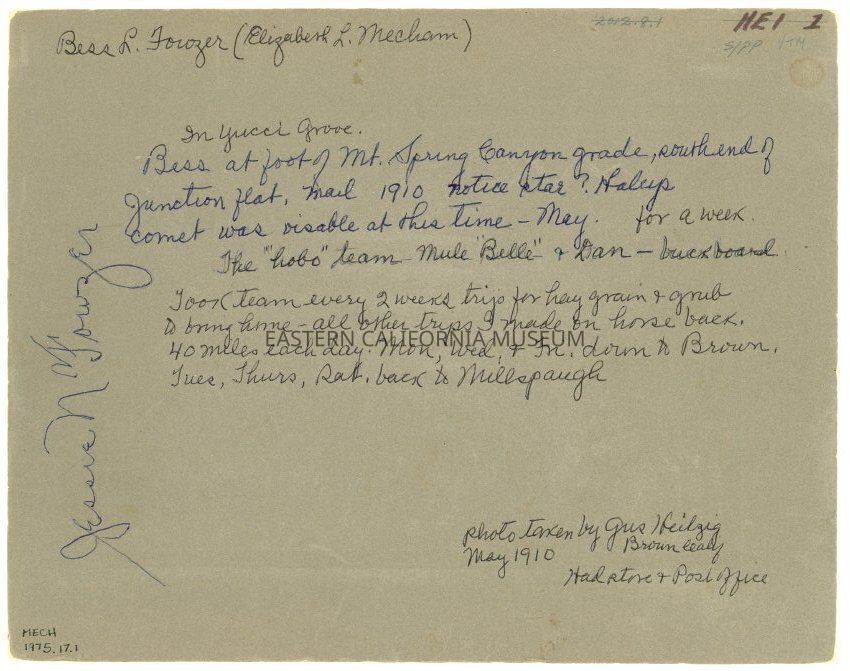 2012.8.1
HEI 1
Bess L. Towzer (Elizabeth L. Mecham)
In Yucci Grove.
Bess at foot of Mt. Spring Canyon grade, south end of
Junction flat, mail 1910 notice star? Haleys
comet was visable at this time - May. for a week.
The "hobo" team - Mule "Belle" & Dan - buckboard
Took team every 2 weeks trip for hay grain & grub
to bring home - all other trips I made on horse back.
40 miles each day. Mon, Wed, & Fri. down to Brown.
EASTERN CALIFORNIA MUSEUM
Tues, Thurs, Sat. back to Millspaugh
Jessie N Towzer
photo taken by Gus
May 1910 Brown
Had store & Post Office
MECH
1975.17.1